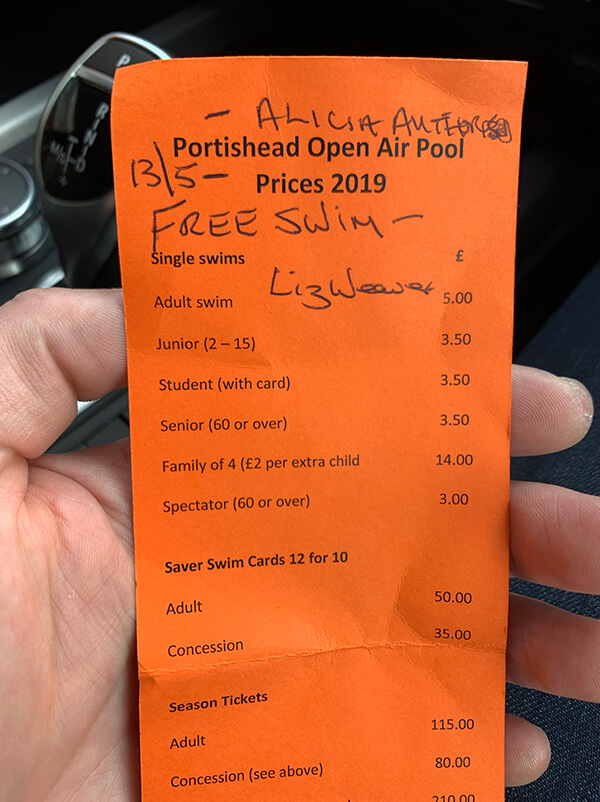 - ALICIA
Portishead Open Air Pool
13/5 -
Prices 2019
FREE SWIM -
Single swims £
Liz Weaver
Adult swim 5.00
Junior (2 – 15) 3.50
Student (with card) 3.50
Senior (60 or over) 3.50
Family of 4 (£2 per extra child 14.00
Spectator (60 or over) 3.00
Saver Swim Cards 12 for 10
Adult 50.00
Concession 35.00
Season Tickets
Adult 115.00
Concession (see above) 80.00
210.00
P
R
N
D
M/S
+